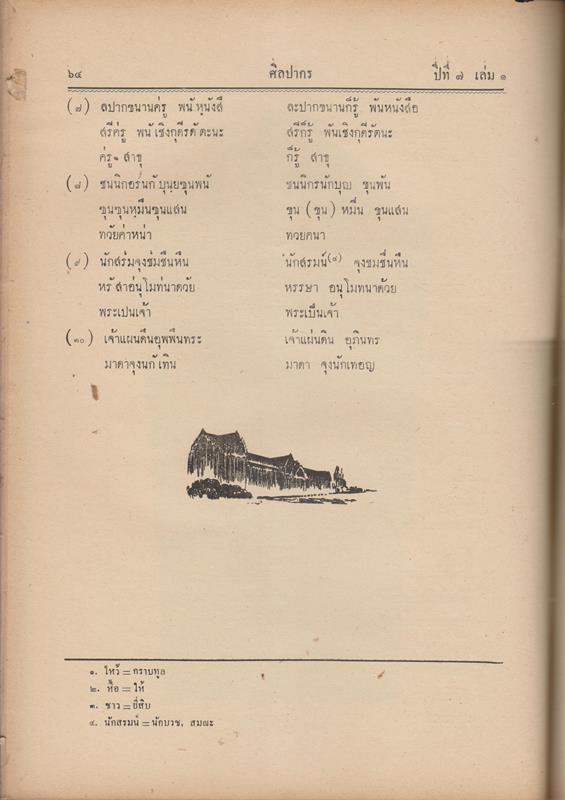 ๖๔ ศิลปากร ปีที่ ๗ เล่ม ๑
(๗) ลปากขนานค่รู พนั หฺนังสื ละปากขนานก็รู้ พันหนังสือ
สรีค่รู พนั เชิงกุฅีรตั ตะนะ สรีก็รู้ พันเชิงกุฅีรัตนะ
ค่รู ๑ สาธุ ก็รู้ สาธุ
(๘) ชนนิกอร่นกั บุนฺยขุนพนั ชนนิกรนักบุญ ขุนพัน
ขุนขุนหฺมืนขุนแสน ขุน (ขุน) หมื่น ขุนแสน
ทวัยค่าหน่า ทวยคนา
(๙) นักสรํมจุงชํมชืนหืน นักสรมน์(๔) จุงชมชื่นหืน
หรั สาอ่นุโมท่นาดวัย หรรษา อนุโมทนาด้วย
พระเปนเจ้า พระเป็นเจ้า
(๑๐) เจ้าแผนดืนอุพพืนทระ เจ้าแผ่นดิน อุภินทร
มาดาจุงนกั เทิน มาดา จุงนักเทอญ
๑. ไหว้ = กราบทูล
๒. ห้อ = ให้
๓. ซาว = ยี่สิบ
๔. นักสรมน์ = นักบวช, สมณะ